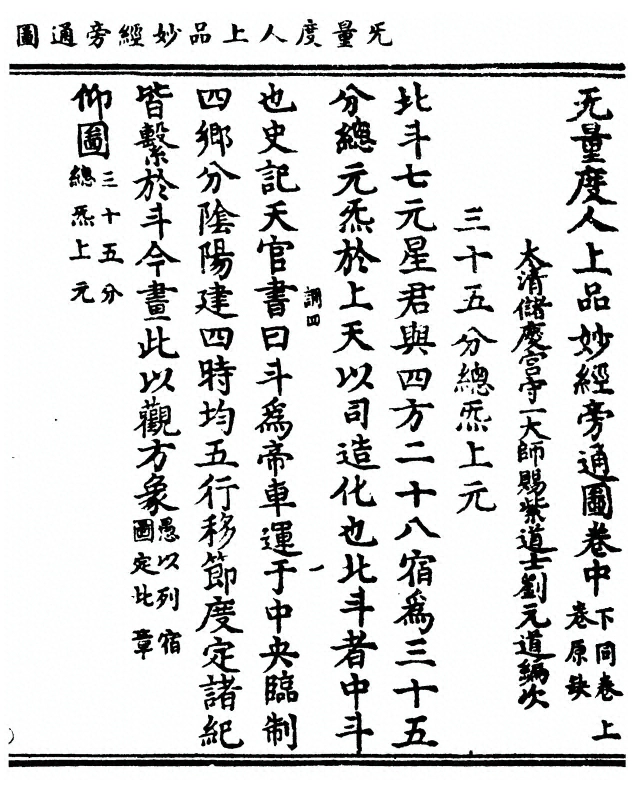 无量度人上品妙經旁通圖
无量度人上品妙經旁通圖卷中下同卷上卷原缺
太清儲慶宮守一大師賜紫道士劉元道編次
三十五分總炁上元
北斗七元星君與四方二十八宿爲三十五
分總元炁於上天以司造化也北斗者中斗
調四
一
也史記天官書曰斗爲帝車運于中央臨制
四鄉分陰陽建四時均五行移節度定諸紀
皆繫於斗今畫此以觀方象愚以列宿圖定比章
仰圖三十五分總炁上元